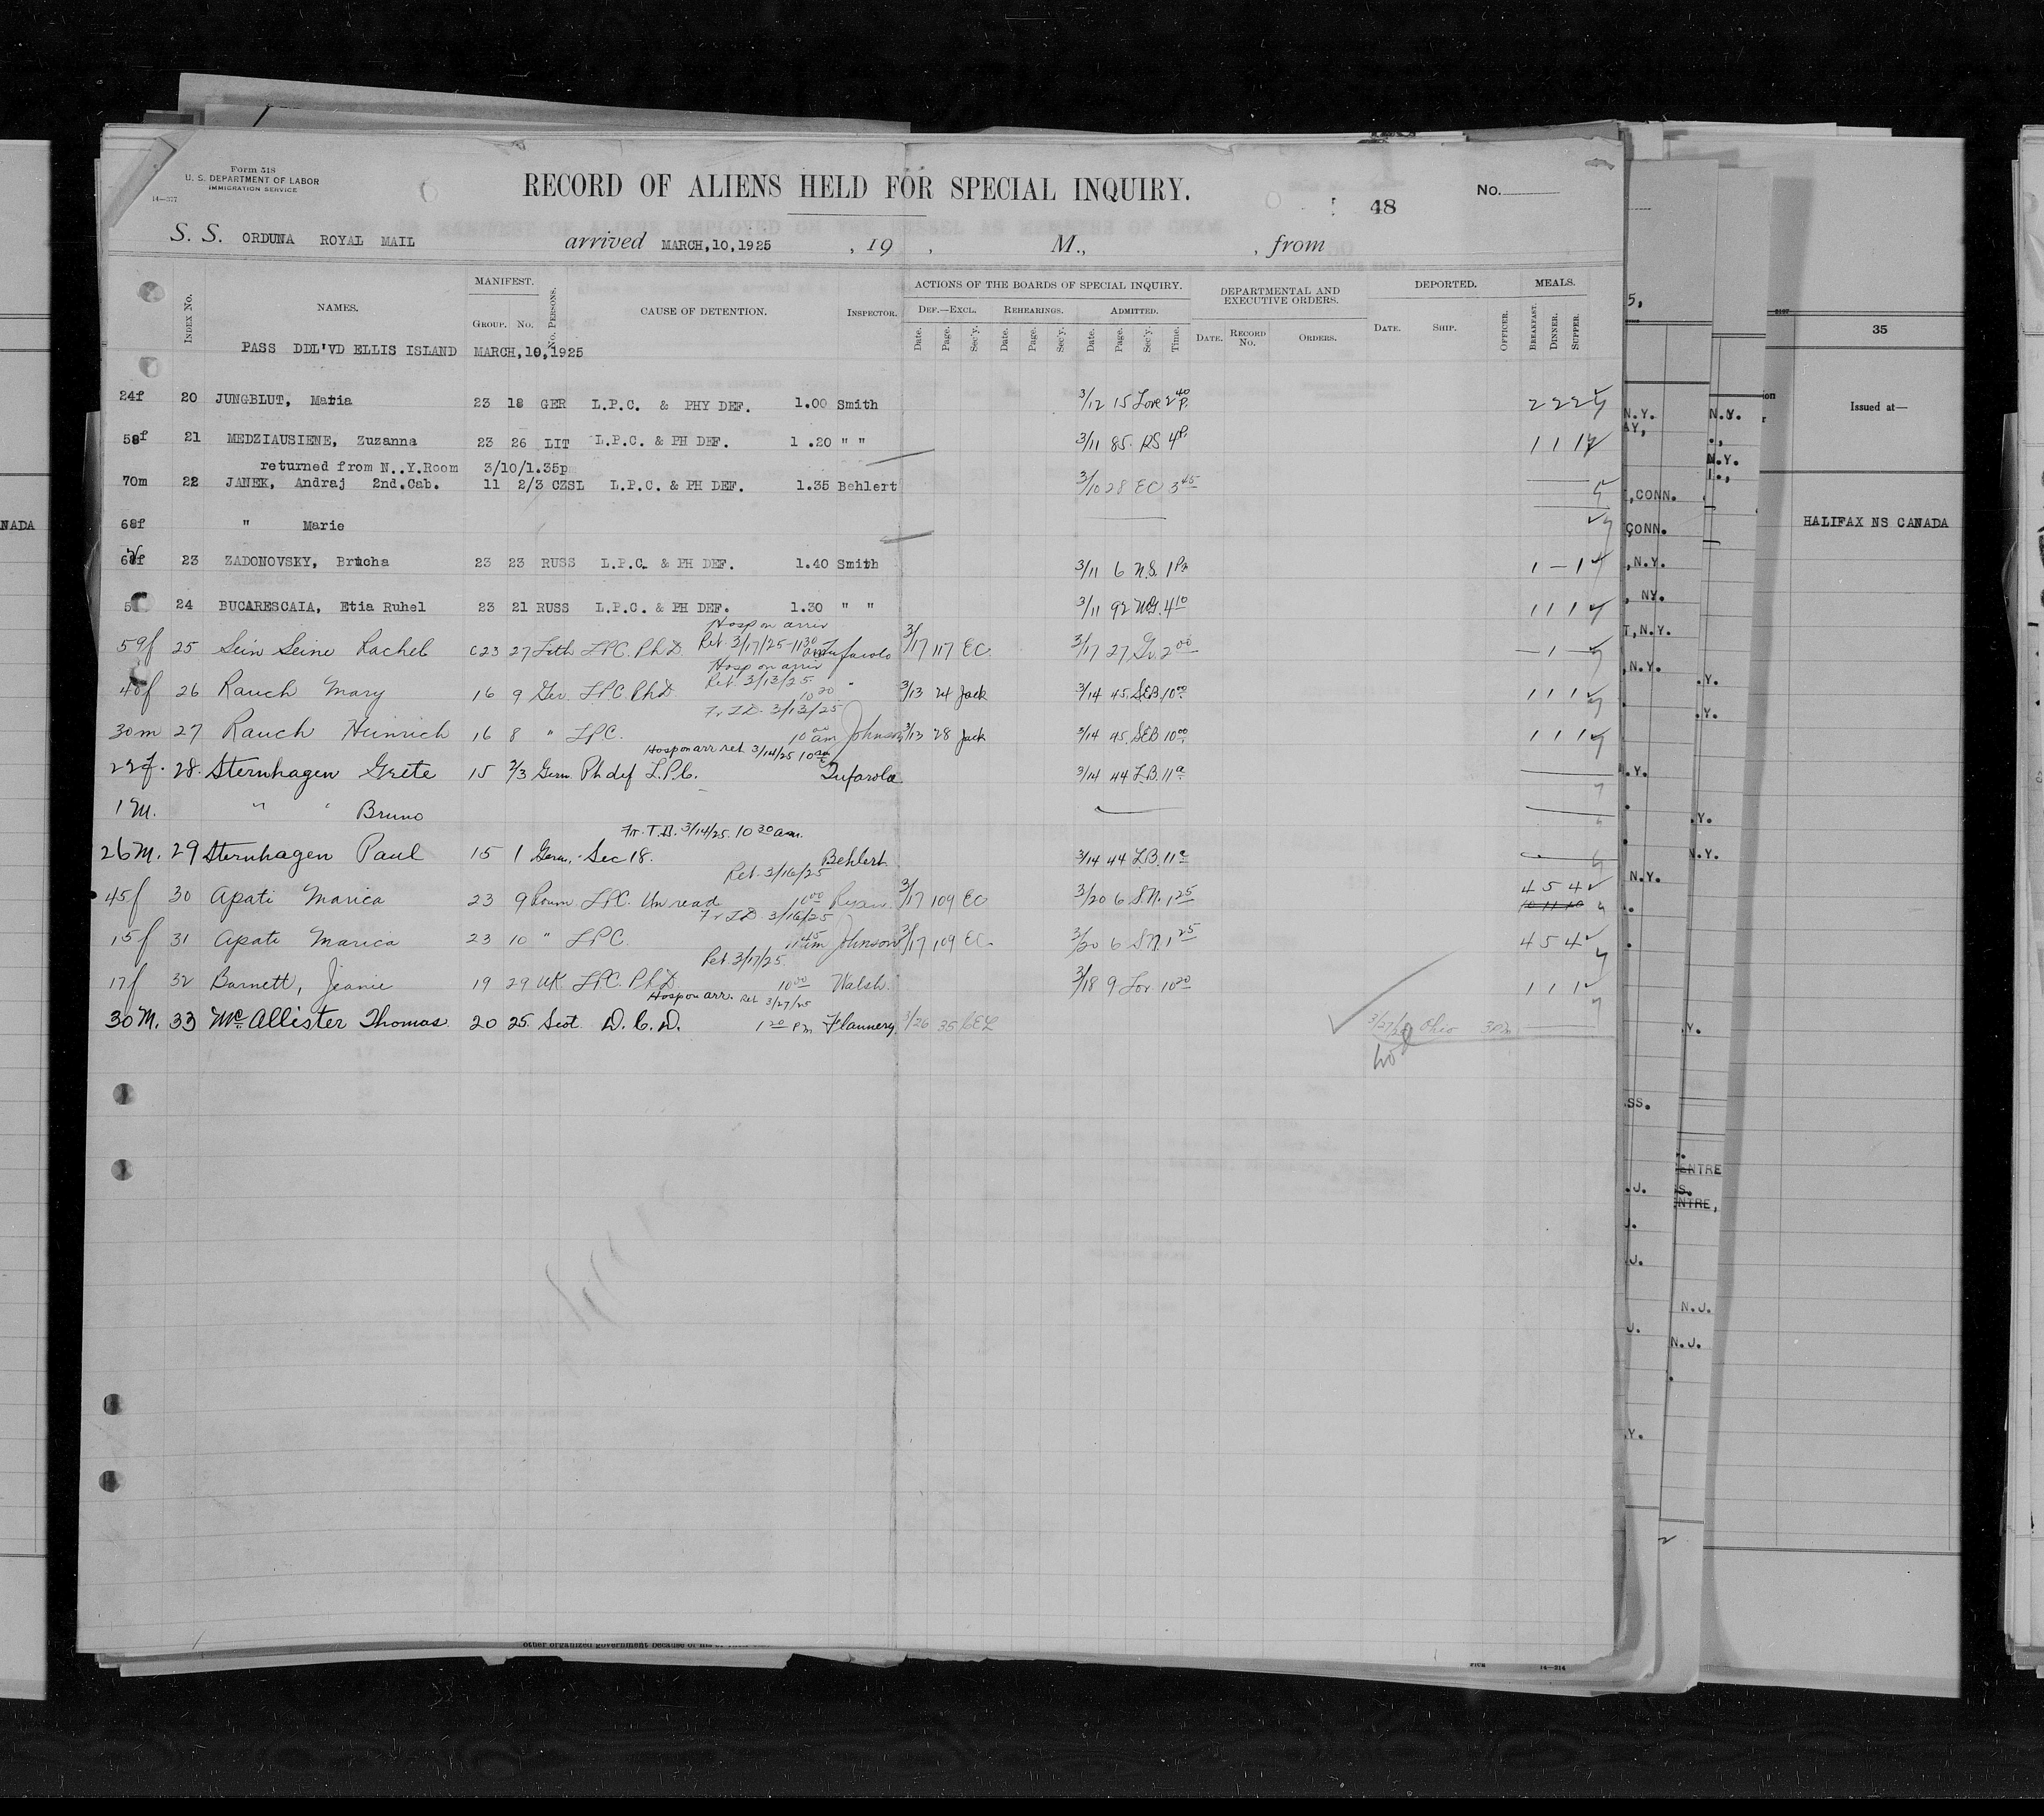 Form 518
U. S. DEPARTMENT OF LABOR
IMMIGRATION SERVICE
14—377
RECORD OF ALIENS HELD FOR SPECIAL INQUIRY.
No.
48
S. S. ORDUNA ROYAL MAIL arrived MARCH,10,1925 , 19 , M., , from
INDEX No. NAMES. MANIFEST. GROUP. No. No. PERSONS. CAUSE OF DETENTION. INSPECTOR. ACTIONS OF THE BOARDS OF SPECIAL INQUIRY. DEPARTMENTAL AND EXECUTIVE ORDERS. DEPORTED. MEALS.
DEF.—EXCL. REHEARINGS. ADMITTED.
Date. Page. Sec'y. Date. Page. Sec'y. Date. Page. Sec'y. Time. DATE. RECORD No. ORDERS. DATE. SHIP. OFFICER. BREAKFAST. DINNER. SUPPER.
PASS DDL'VD ELLIS ISLAND MARCH,10,1925
24f 20 JUNGBLUT, Maria 23 18 GER L.P.C. & PHY DEF. 1.00 Smith 3/12 15 Lore 2 40 P. 2 2 2
58f 21 MEDZIAUSIENE, Zuzanna 23 26 LIT L.P.C. & PH DEF. 1 .20 " " 3/11 85 RS 4 P. 1 1 1
returned from N..Y.Room 3/10/1.35p
70m 22 JANEK, Andraj 2nd.Cab. 11 2/3 CZSL L.P.C. & PH DEF. 1.35 Behlert 3/10 28 EC 3 45
68f " Marie
23 ZADONOVSKY, Brucha 23 23 RUSS L.P.C. & PH DEF. 1.40 Smith 3/11 6 N.S. 1 Pm 1 — 1
24 BUCARESCAIA, Etia Ruhel 23 21 RUSS L.P.C. & PH DEF. 1.30 " " 3/11 92 4 10 1 1 1
Hosp on arriv
Ret. 3/17/25-11 30 am
59f 25 Sein Seine Rachel C23 27 Lith LPC. Ph D. Tufarolo 3/17 117 EC. 3/17 27 2 00 — 1 —
Hosp on arriv
Ret. 3/13/25
10 20
40f 26 Rauch Mary 16 9 Ger. LPC. PhD. " 3/13 24 Jack 3/14 45 SEB. 10 00 1 1 1
Fr T.D. 3/13/25
30m 27 Rauch Heinrich 16 8 " LPC. 10 00 am Johnson 3/13 28 Jack 3/14 45 SEB 10 00 1 1 1
Hosp on arr ret 3/14/25 10 30 am
22f. 28. Sternhagen Grete 15 2/3 Germ. Ph def L.P.C. Tufarolo 3/14 44 L.B. 11 a
1 M. " " Bruno
Fr. T.D. 3/14/25. 10 30 am.
26 M. 29 Sternhagen Paul 15 1 Germ. Sec 18. Behlert 3/14 44 L.B. 11 a
Ret. 3/16/25
45f 30 Apati Marica 23 9 Roum LPC. Un read 10 00 Ryan 3/17 109 EC 3/20 6 S.N. 1 25 4 5 4
Fr T.D. 3/16/25
15f 31 Apati Marica 23 10 " LPC. 11 45 am Johnson 3/17 109 EC. 3/20 6 S.N. 1 25 4 5 4
Ret. 3/17/25
17f 32 Barnett, Jeanie 19 29 UK LPC. Ph D. 10 00 Walsh. 3/18 9 Lor. 10 20 1 1 1
Hosp on arr. ret 3/27/25
30 M. 33 McAllister Thomas. 20 25. Scot D. C. D. 1 20 Pm Flannery 3/26 35 CEL Ohio 3 Pm
other organized government because of his or
14—214
5,
N.Y.
N.Y.
AY,
N.Y.
,CONN.
CONN.
,N.Y.
, NY.
T,N.Y.
,N.Y.
.Y.
.Y.
.Y.
.Y.
N.Y.
N.Y.
Y.
SS.
ENTRE
.J.
S.
ENTRE,
J.
.J.
N.J.
J.
N.J.
Y.
35
Issued at—
HALIFAX NS CANADA
NADA